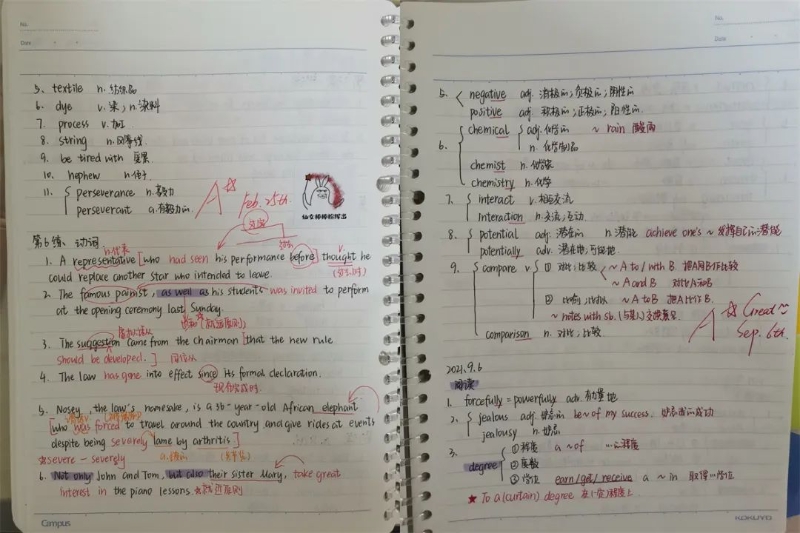 No.
Date
5. textile n. 纺织品
6. dye v. 染; n. 染料
7. process v. 加工
8. string n.
9. be tired with
10. nephew n. 侄子
11. perseverance n. 毅力
perseverant a. 有毅力的
A☆ Feb. 25th.
第6续. 动词
n. 代表
1. A representative [who had seen his performance before] thought he
could replace another star who intended to leave.
2. The famous painist, as well as his students was invited to perform
at the opening ceremony last Sunday.
3. The suggestion came from the chairman [that the new rule
should be developed.] 同位从
4. The law has gone into effect since His formal declaration.
现在完成时
5. Nosey, the law's namesake, is a 36-year-old African elephant
[who was forced to travel around the country and give rides at events
despite being severely lame by arthritis]
☆severe - severely
6. Not only John and Tom, but also their sister Mary, take great
interest in the piano lessons. ☆就近原则
Campus
No.
Date
5. negative adj. 消极的; 负极的; 阴性的
positive adj. 积极的; 正极的; 阳性的
6. chemical adj. 化学的 ~ rain 酸雨
n. 化学制品
chemist n. 化学家
chemistry n. 化学
7. interact v. 相互交流
Interaction n. 交流; 互动
8. potential adj. 潜在的 n. 潜能 achieve one's ~ 发挥自己的潜能
potentially adv. 潜在地; 可能地
9. compare v ① 对比; 比较 ~ A to / with B 把A同B作比较
~ A and B 对比A和B
② ~ A to B 把A比作B.
~ notes with sb. (与某人) 交换意见
comparison n. 对比; 比较
A☆ Great~
Sep. 6th.
2021.9.6
阅读
1. forcefully = powerfully adv. 有力量地
2. jealous adj. 妒忌的 be ~ of my success. 妒忌我的成功
jealousy n. 妒忌
3. degree ① 程度 a ~ of ...的程度
② 度数
③ 学位 earn/get/receive a ~ in 取得...学位
★ To a (curtain) degree 在(一定)程度上
KOKUYO